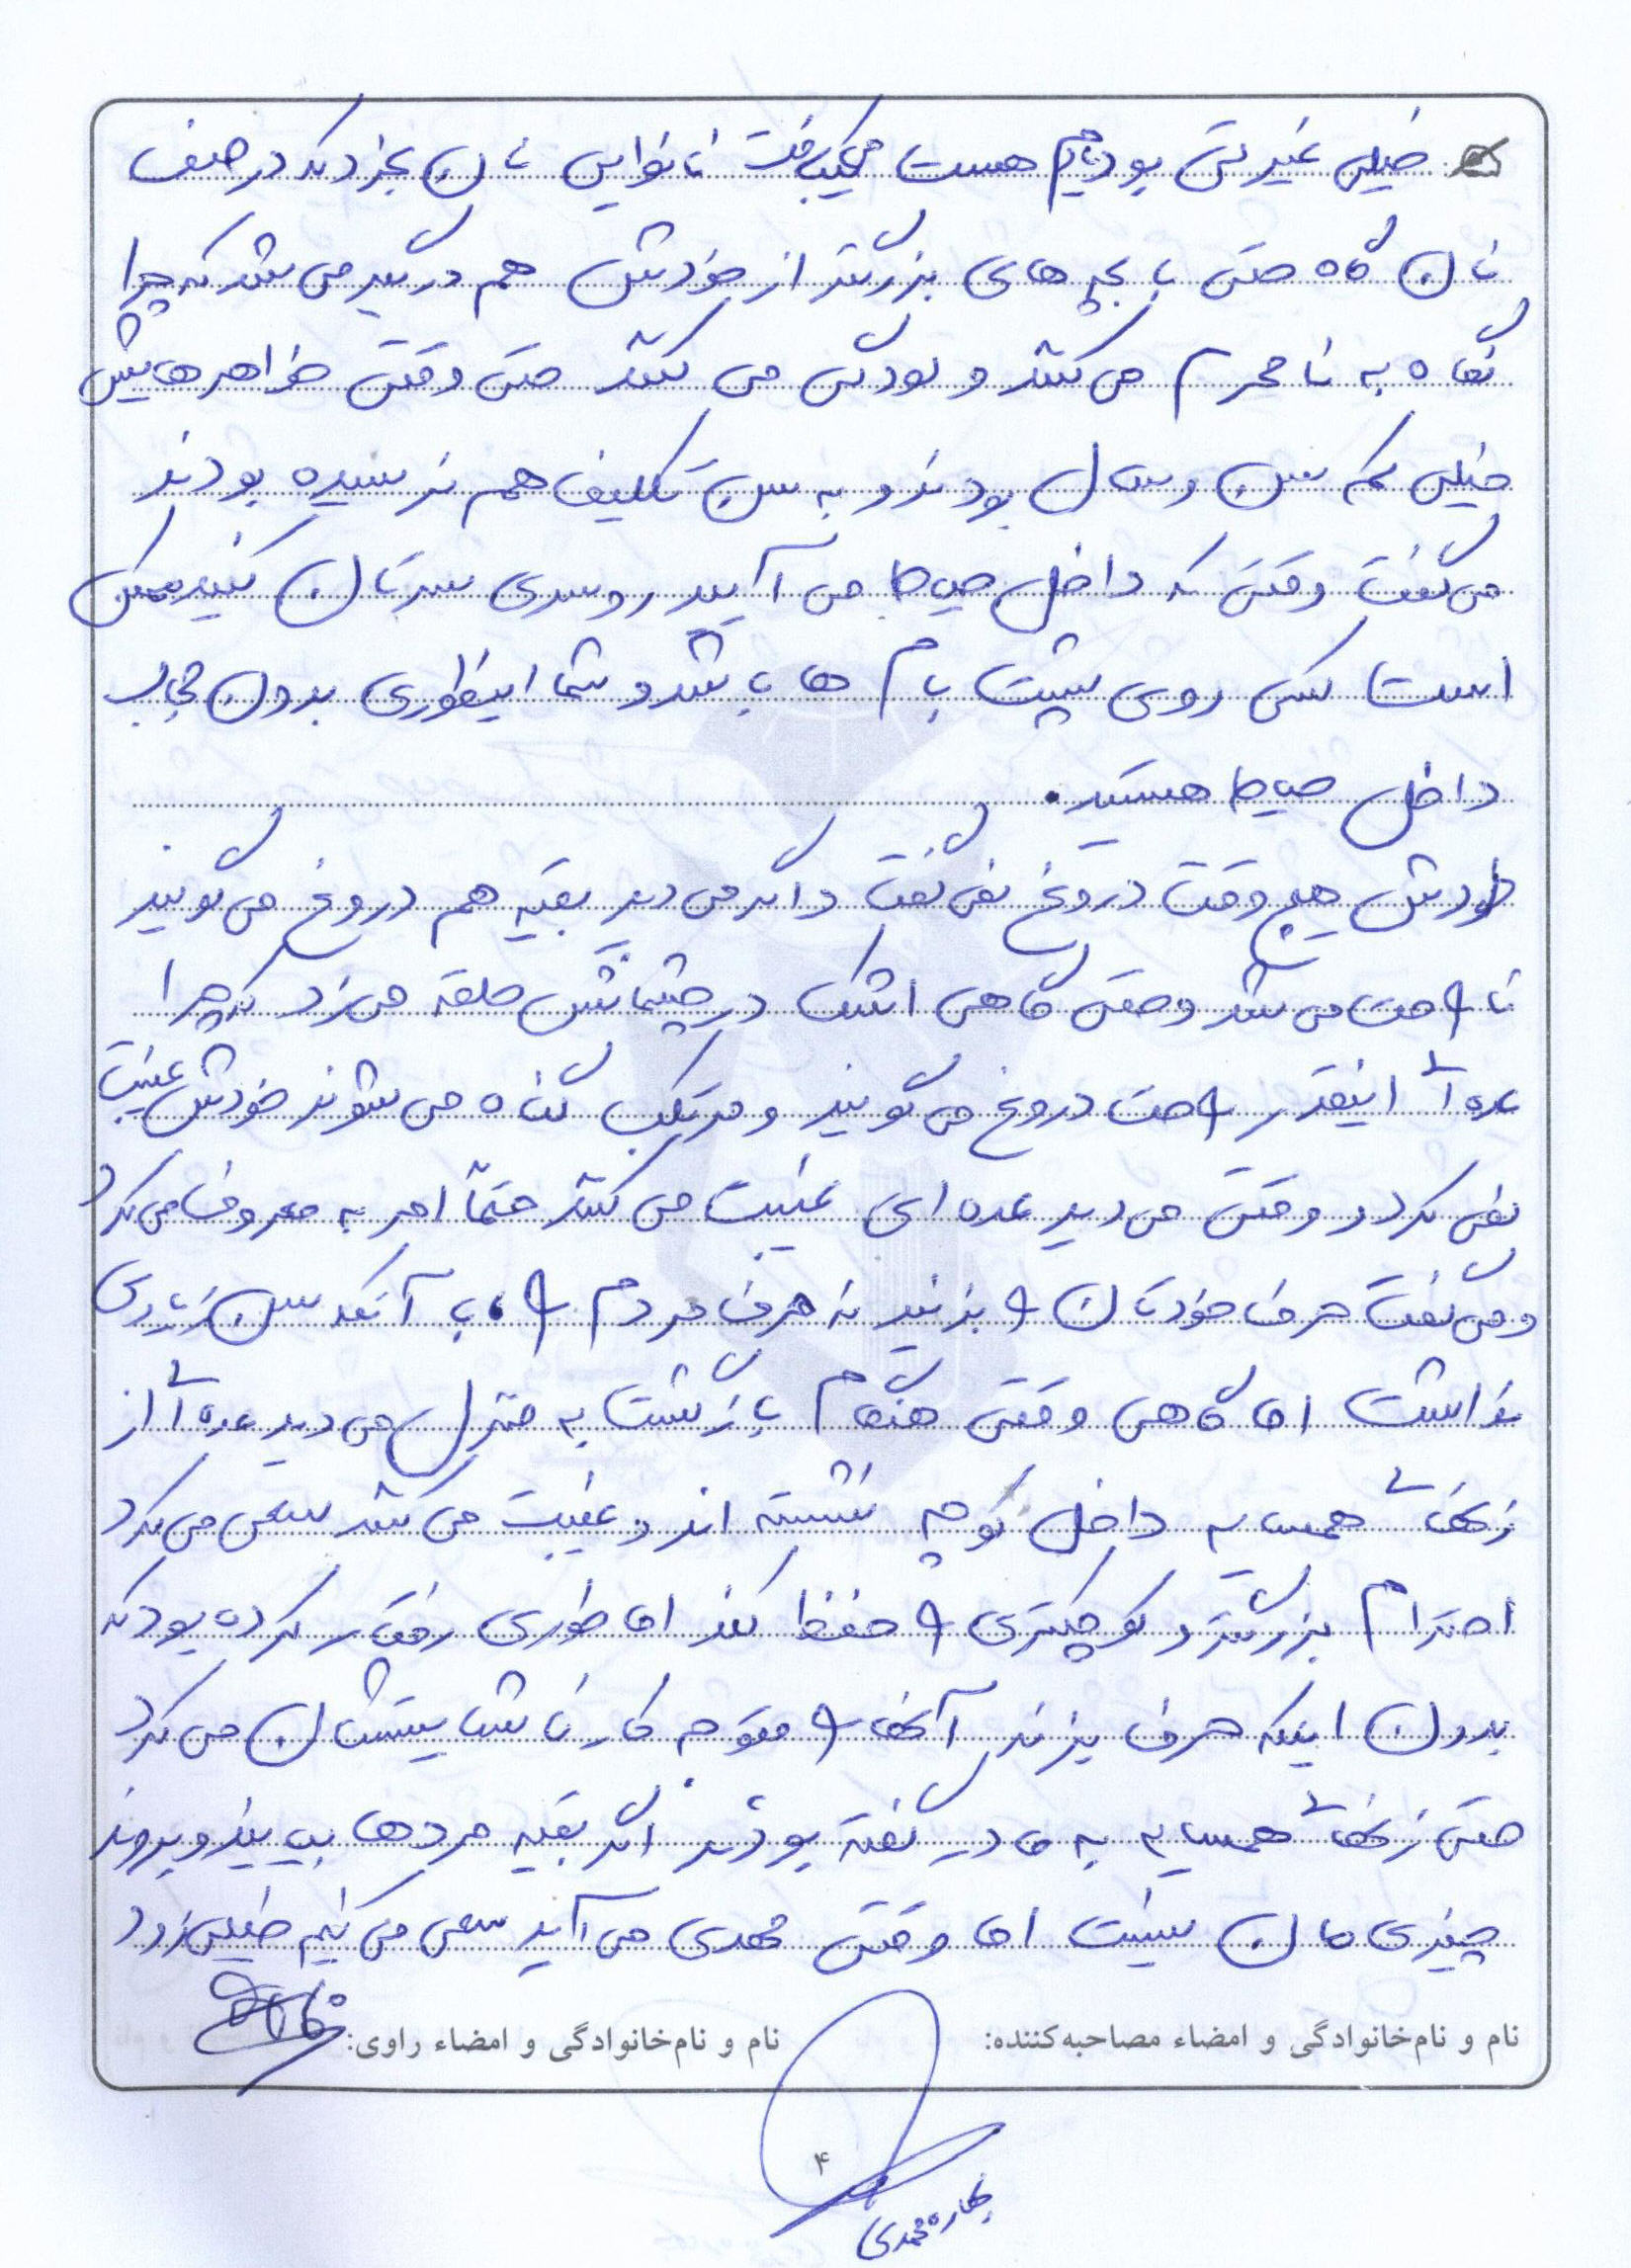 خیلی غیرتی بود یادم هست می رفت نانوایی نان بخرد که در صف
نان گاه حتی با بچه های بزرگتر از خودش هم درگیر می شد که چرا
نگاه به نامحرم می کنند و لودگی می کنند حتی وقتی خواهرهایش
خیلی کم سن و سال بودند و به سن تکلیف هم نرسیده بودند
می گفت وقتی که داخل حیاط می آیید روسری سرتان کنید ممکن
است کسی روی پشت بام ها باشد و شما اینطوری بدون حجاب
داخل حیاط هستید.
خودش هیچ وقت دروغ نمی گفت و اگر می دید بقیه هم دروغ می گویند
ناراحت می شد و حتی گاهی اشک در چشمانش حلقه می زد که چرا
عده ای اینقدر راحت دروغ می گویند و مرتکب گناه می شوند خودش غیبت
نمی کرد و وقتی می دید عده ای غیبت می کنند حتماً امر به معروف می کرد
و می گفت حرف خودتان را بزنید نه حرف مردم را، با آنکه سن زیادی
نداشت اما گاهی وقتی هنگام بازگشت به منزل می دید عده ای از
زنهای همسایه داخل کوچه نشسته اند و غیبت می کنند سعی می کرد
احترام بزرگتر و کوچکتری را حفظ کند اما طوری رفتار کرده بود که
بدون اینکه حرف بزند آنها را متوجه کار ناشایستشان می کرد
حتی زنهای همسایه به مادر گفته بودند اگر بقیه مردها بیایند و بروند
چیزی مان نیست اما وقتی مهدی می آید سعی می کنیم خیلی زود
نام و نام‌خانوادگی و امضاء مصاحبه‌کننده:
نام و نام‌خانوادگی و امضاء راوی:
۴
بهاره محمدی